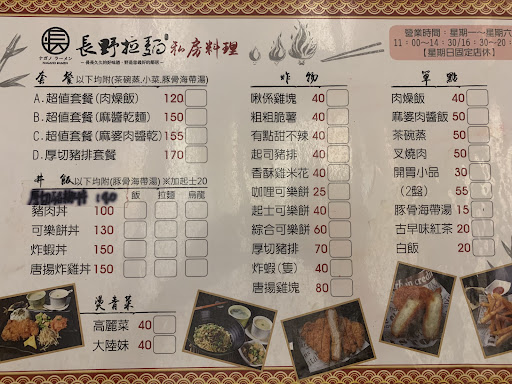 長
ナガノ ラーメン
長野拉麵 私房料理
營業時間：星期一～星期六
11：00～14：30/16：30～20：
【星期日固定店休】
套餐 以下均附(茶碗蒸,小菜,豚骨海帶湯)
A.超值套餐(肉燥飯) 120
B.超值套餐(麻醬乾麵) 150
C.超值套餐(麻婆肉醬乾) 155
D.厚切豬排套餐 170
丼飯 以下均附(豚骨海帶湯) ※加起士20
飯 拉麵 烏龍
豬肉丼 100
可樂餅丼 130
炸蝦丼 150
唐揚炸雞丼 150
燙青菜
高麗菜 40
大陸妹 40
炸物
啾係雞塊 40
粗粗脆薯 40
有點甜不辣 40
起司豬排 40
香酥雞米花 40
咖哩可樂餅 25
起士可樂餅 40
綜合可樂餅 60
厚切豬排 70
炸蝦(隻) 40
唐揚雞塊 80
單點
肉燥飯 40
麻婆肉醬飯 50
茶碗蒸 30
叉燒肉 50
開胃小品 30
(2盤) 55
豚骨海帶湯 15
古早味紅茶 20
白飯 20